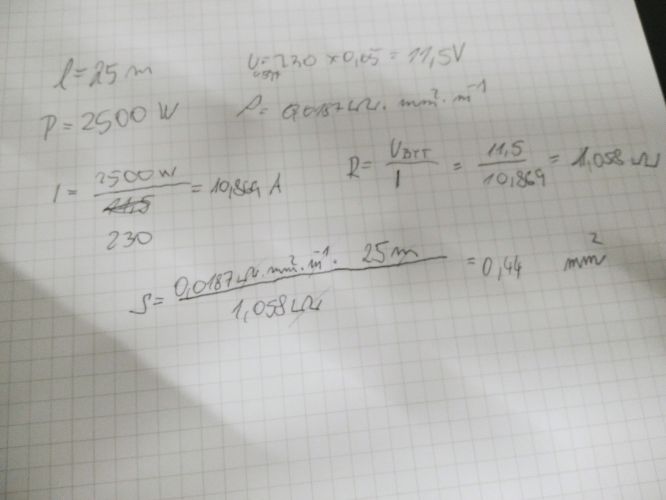 l = 25 m U = 230 × 0,05 = 11,5V
P = 2500 W ρ = 0,0187 Ω · mm² · m⁻¹
I = 2500 W / 230 = 10,869 A R = U / I = 11,5 / 10,869 = 1,058 Ω
S = 0,0187 Ω · mm² · m⁻¹ · 25 m / 1,058 Ω = 0,44 mm²